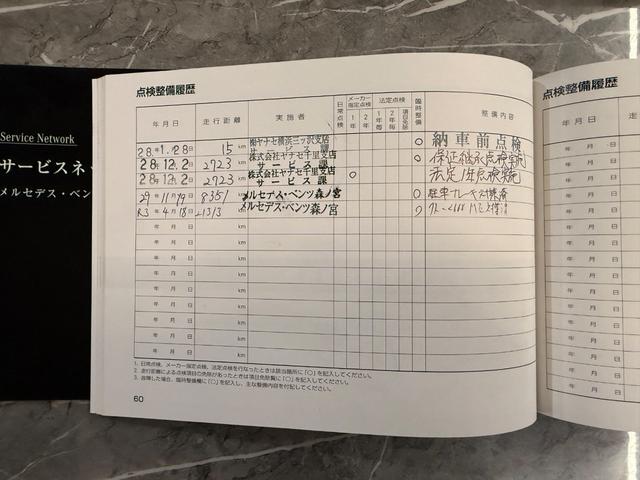 Service Network
サービスネ
メルセデス・ベン
点検整備履歴
年月日 走行距離 実施者 日常点検 メーカー指定点検 1年 2年 法定点検 1年毎 2年毎 項目免除 臨時整備 整備内容
28年1月28日 15km ㈱ヤナセ横浜三ツ沢支店 サービス課 ○ 納車前点検
28年12月2日 2923km 株式会社ヤナセ千里支店 サービス課 ○ 保証継承点検実施
28年12月2日 2923km 株式会社ヤナセ千里支店 サービス課 ○ 法定1年点検実施
29年11月19日 8351km メルセデス・ベンツ森ノ宮 ○ 駐車ブレーキ
R3年4月18日 21313km メルセデス・ベンツ森ノ宮 ○
年 月 日 km
年 月 日 km
年 月 日 km
年 月 日 km
年 月 日 km
年 月 日 km
年 月 日 km
年 月 日 km
年 月 日 km
1. 日常点検、メーカー指定点検、法定点検を行なったときは該当箇所に「○」を記入してください。
2. 走行距離による点検項目の免除があったときは項目免除覧に「○」を記入してください。
3. 故障した場合、臨時整備欄に「○」を記入し、主な整備内容を付記してください。
60
点検整備履歴
年月日 走行
年 月 日
年 月 日
年 月 日
年 月 日
年 月 日
年 月 日
年 月 日
年 月 日
年 月 日
年 月 日
年 月 日
年 月 日
年 月 日
年 月 日